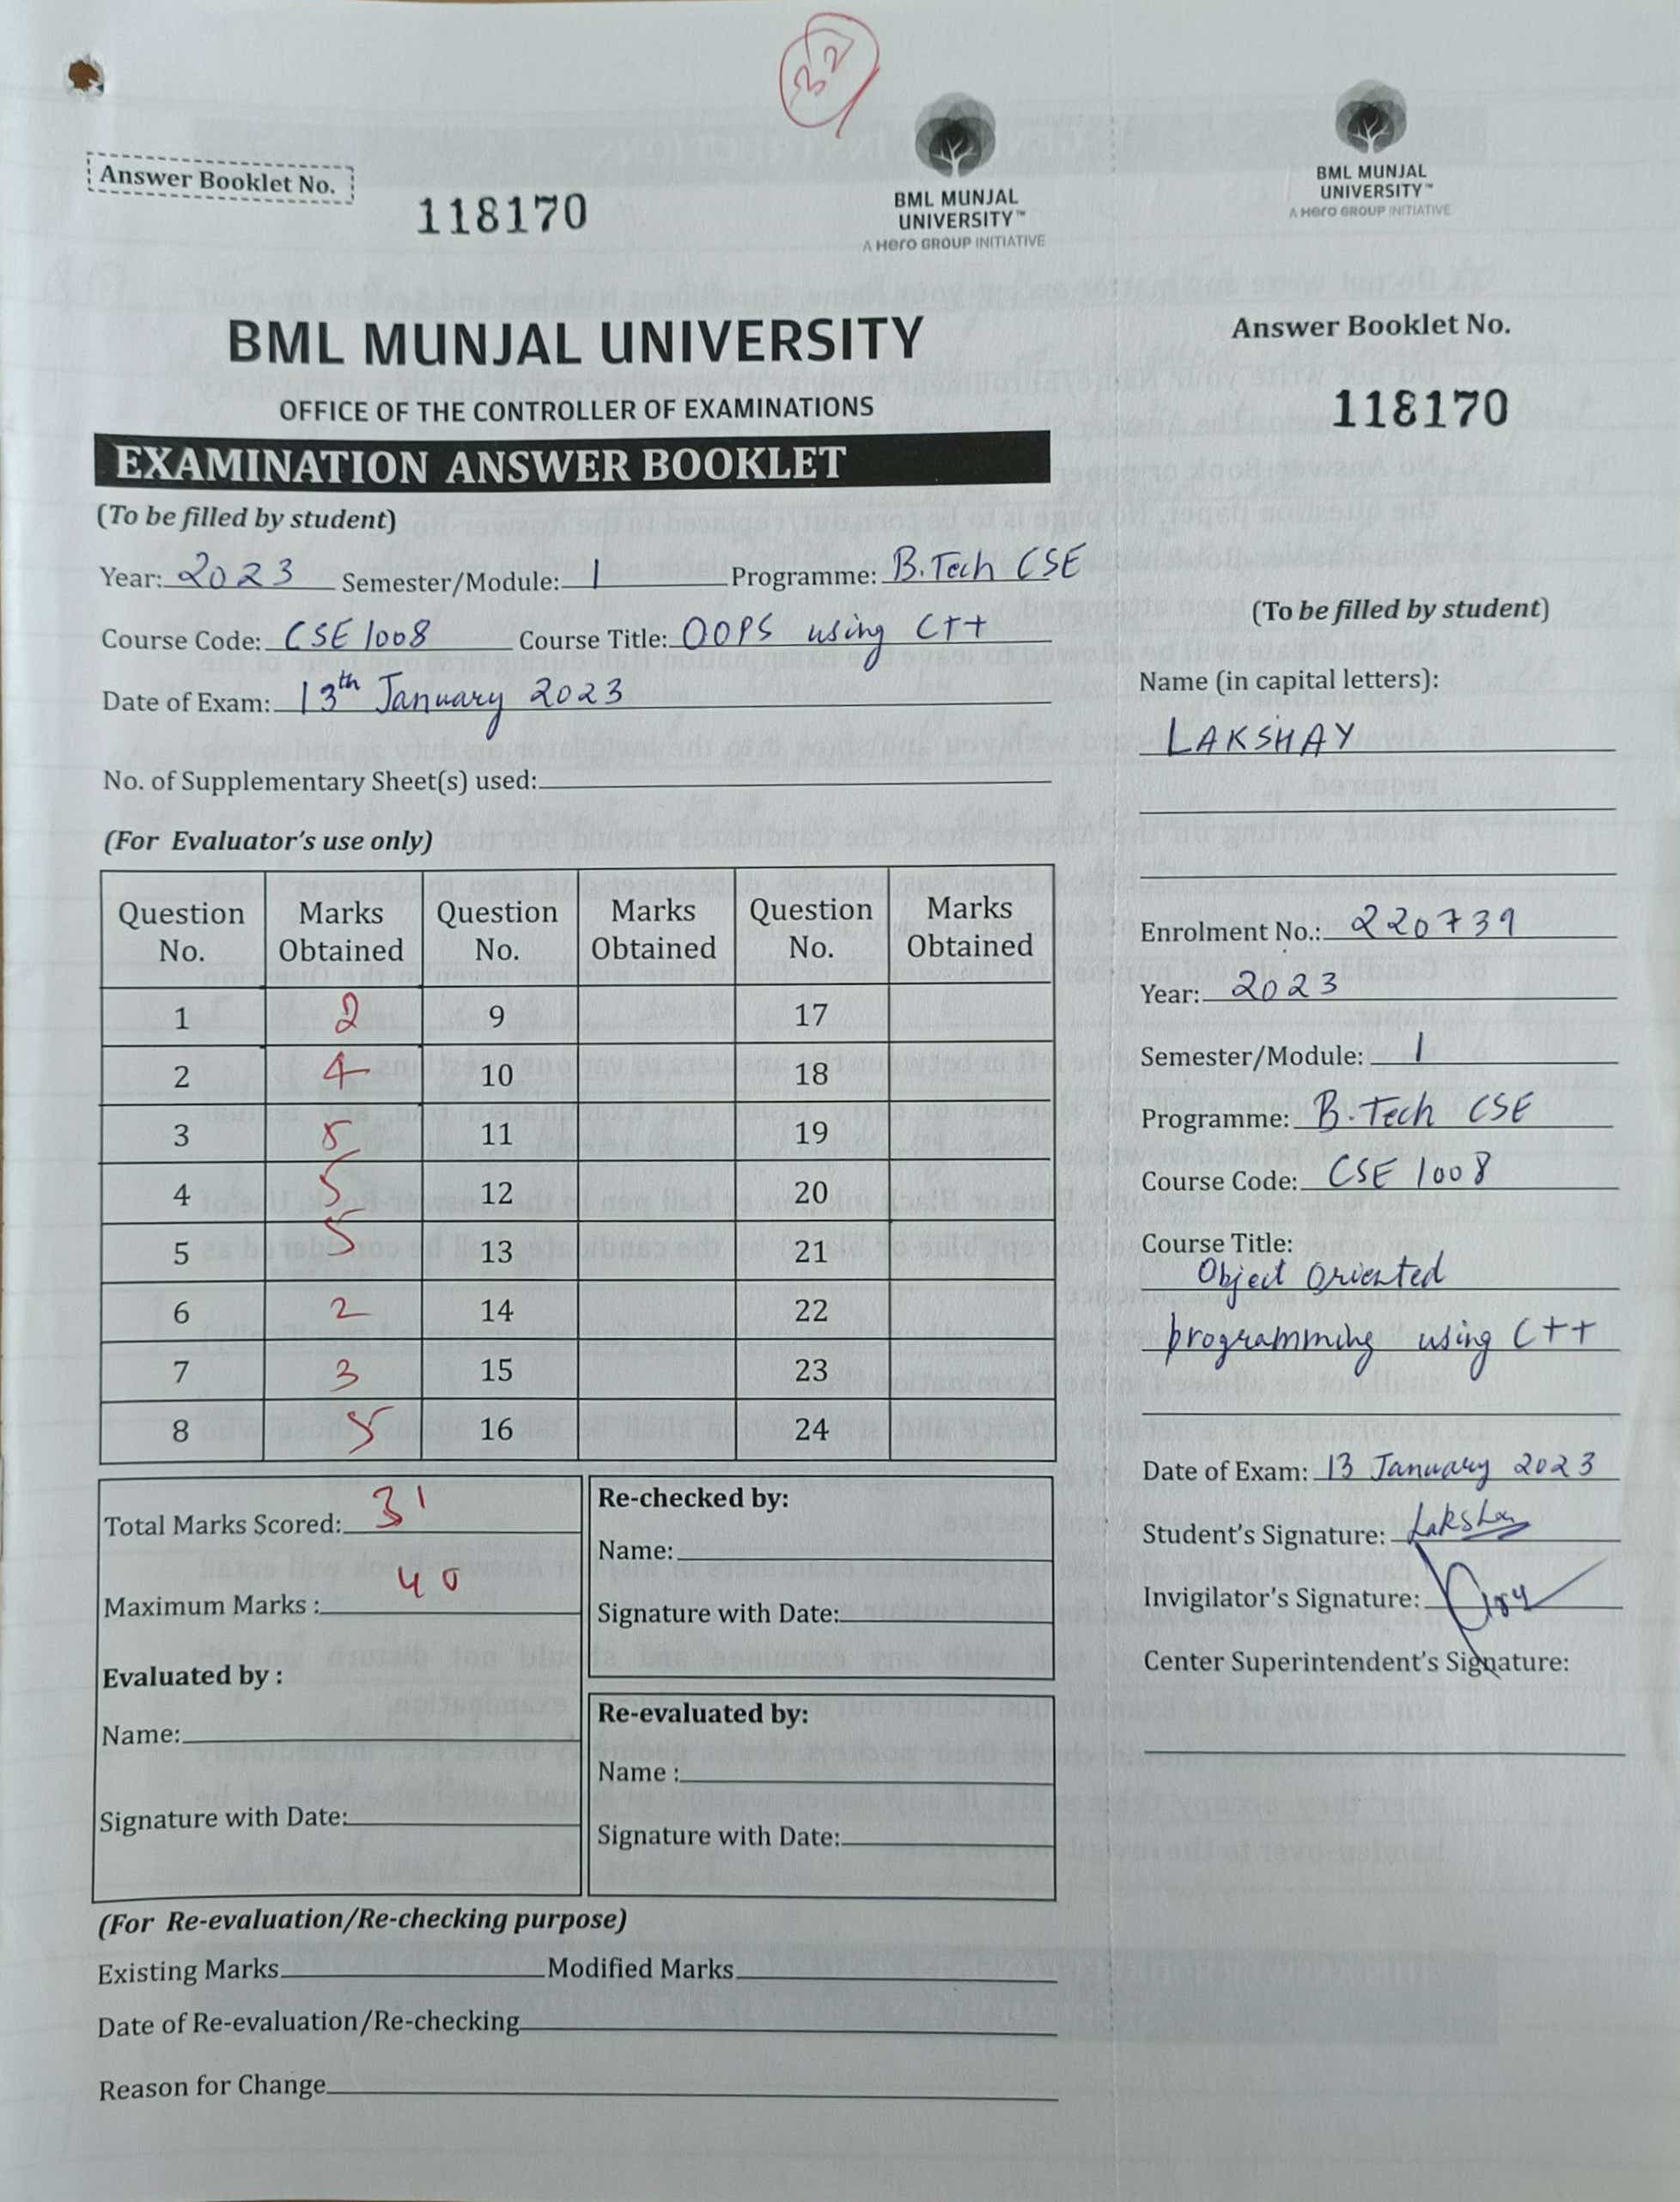 32
Answer Booklet No.
118170
BML MUNJAL
UNIVERSITY™
A Hero GROUP INITIATIVE
BML MUNJAL UNIVERSITY
OFFICE OF THE CONTROLLER OF EXAMINATIONS
EXAMINATION ANSWER BOOKLET
(To be filled by student)
Year: 2023 Semester/Module: 1 Programme: B.Tech CSE
Course Code: CSE 1008 Course Title: OOPS using C++
Date of Exam: 13th January 2023
No. of Supplementary Sheet(s) used:
(For Evaluator's use only)
Question No. Marks Obtained Question No. Marks Obtained Question No. Marks Obtained
1 2 9 17
2 4 10 18
3 5 11 19
4 5 12 20
5 5 13 21
6 2 14 22
7 3 15 23
8 5 16 24
Total Marks Scored: 31
Maximum Marks : 40
Evaluated by :
Name:
Signature with Date:
Re-checked by:
Name:
Signature with Date:
Re-evaluated by:
Name :
Signature with Date:
(For Re-evaluation/Re-checking purpose)
Existing Marks Modified Marks
Date of Re-evaluation/Re-checking
Reason for Change
BML MUNJAL
UNIVERSITY™
A Hero GROUP INITIATIVE
Answer Booklet No.
118170
(To be filled by student)
Name (in capital letters):
LAKSHAY
Enrolment No.: 220739
Year: 2023
Semester/Module: 1
Programme: B.Tech CSE
Course Code: CSE 1008
Course Title:
Object Oriented
programming using C++
Date of Exam: 13 January 2023
Student's Signature: Lakshay
Invigilator's Signature:
Center Superintendent's Signature: